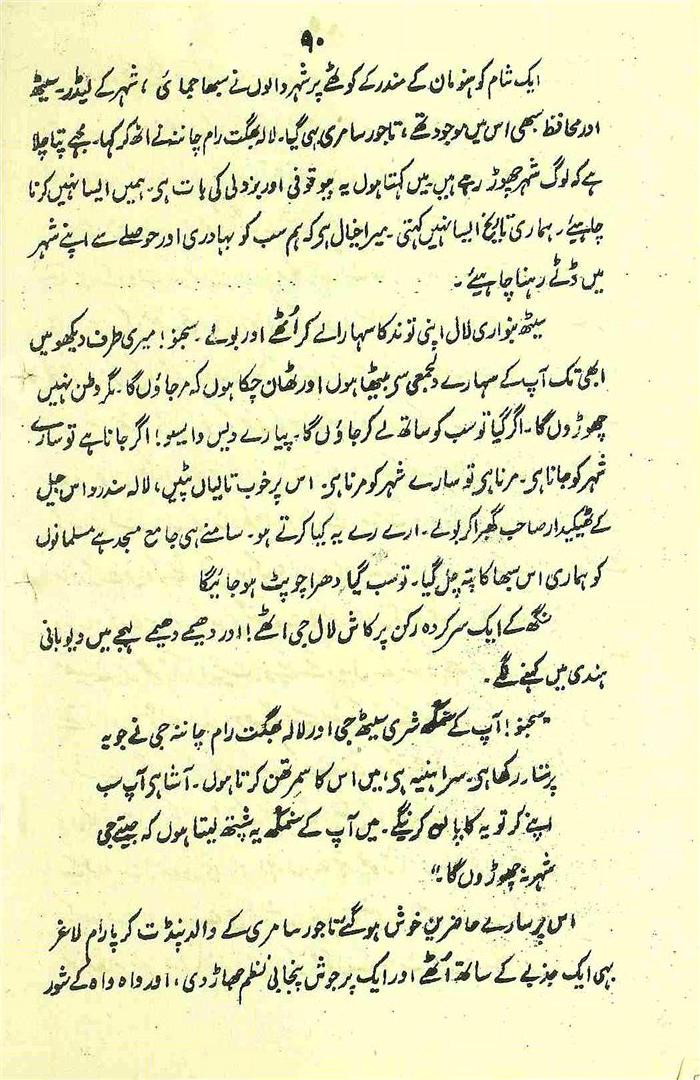 ۹۰
ایک شام کو ہنومان کے مندر کے کوٹھے پر شہر والوں نے سبھا جمائی ، شہر کے لیڈر۔ سیٹھ
اور محافظ سبھی اس میں موجود تھے ، تاجور سامری بھی گیا۔ لالہ بھگت رام چاننہ نے اٹھ کر کہا۔ مجھے پتا چلا
ہے کہ لوگ شہر چھوڑ رہے ہیں میں کہتا ہوں یہ بیوقوفی اور بزدلی کی بات ہی۔ ہمیں ایسا نہیں کرنا
چاہیئے۔ ہماری تاریخ ایسا نہیں کہتی۔ میرا خیال ہی کہ ہم سب کو بہادری اور حوصلے سے اپنے شہر
میں ڈٹے رہنا چاہیئے ۔
سیٹھ بنواری لال اپنی توند کا سہارا لے کر اُٹھے اور بولے ۔ سجنو! میری طرف دیکھو میں
ابھی تک آپ کے سہارے دلجمعی سی بیٹھا ہوں اور ٹھان چکا ہوں کہ مر جاؤں گا۔ مگر وطن نہیں
چھوڑوں گا۔ اگر گیا تو سب کو ساتھ لے کر جاؤں گا۔ پیارے دیس واسیو! اگر جانا ہے تو سارے
شہر کو جانا ہی۔ مرنا ہی تو سارے شہر کو مرنا ہی۔ اس پر خوب تالیاں پٹیں، لالہ سندر داس جیل
کے ٹھیکیدار صاحب گھبرا کر بولے۔ ارے رے یہ کیا کرتے ہو۔ سامنے ہی جامع مسجد ہے مسلمانوں
کو ہماری اس سبھا کا پتہ چل گیا۔ تو سب گیا دھرا چوپٹ ہو جائیگا
سنگھ کے ایک سر کردہ رکن پرکاش لال جی اٹھے! اور دھیمے دھیمے لہجے میں دیوبانی
ہندی میں کہنے لگے۔
"سجنو! آپ کے سمکھ شری سیٹھ جی اور لالہ بھگت رام چاننہ جی نے جو یہ
پرستار رکھا ہی۔ سراہنیہ ہی؛ میں اس کا سمرتھن کرتا ہوں۔ آشا ہی آپ سب
اپنے کرتویہ کا پالن کرینگے۔ میں آپ کے سمکھ یہ شپتھ لیتا ہوں کہ جیتے جی
شہر نہ چھوڑوں گا۔"
اس پر سارے حاضرین خوش ہو گئے تاجور سامری کے والد پنڈت کرپا رام لاغر
بھی ایک جذبے کے ساتھ اُٹھے اور ایک پر جوش پنجابی نظم جھاڑ دی، اور واہ واہ کے شور